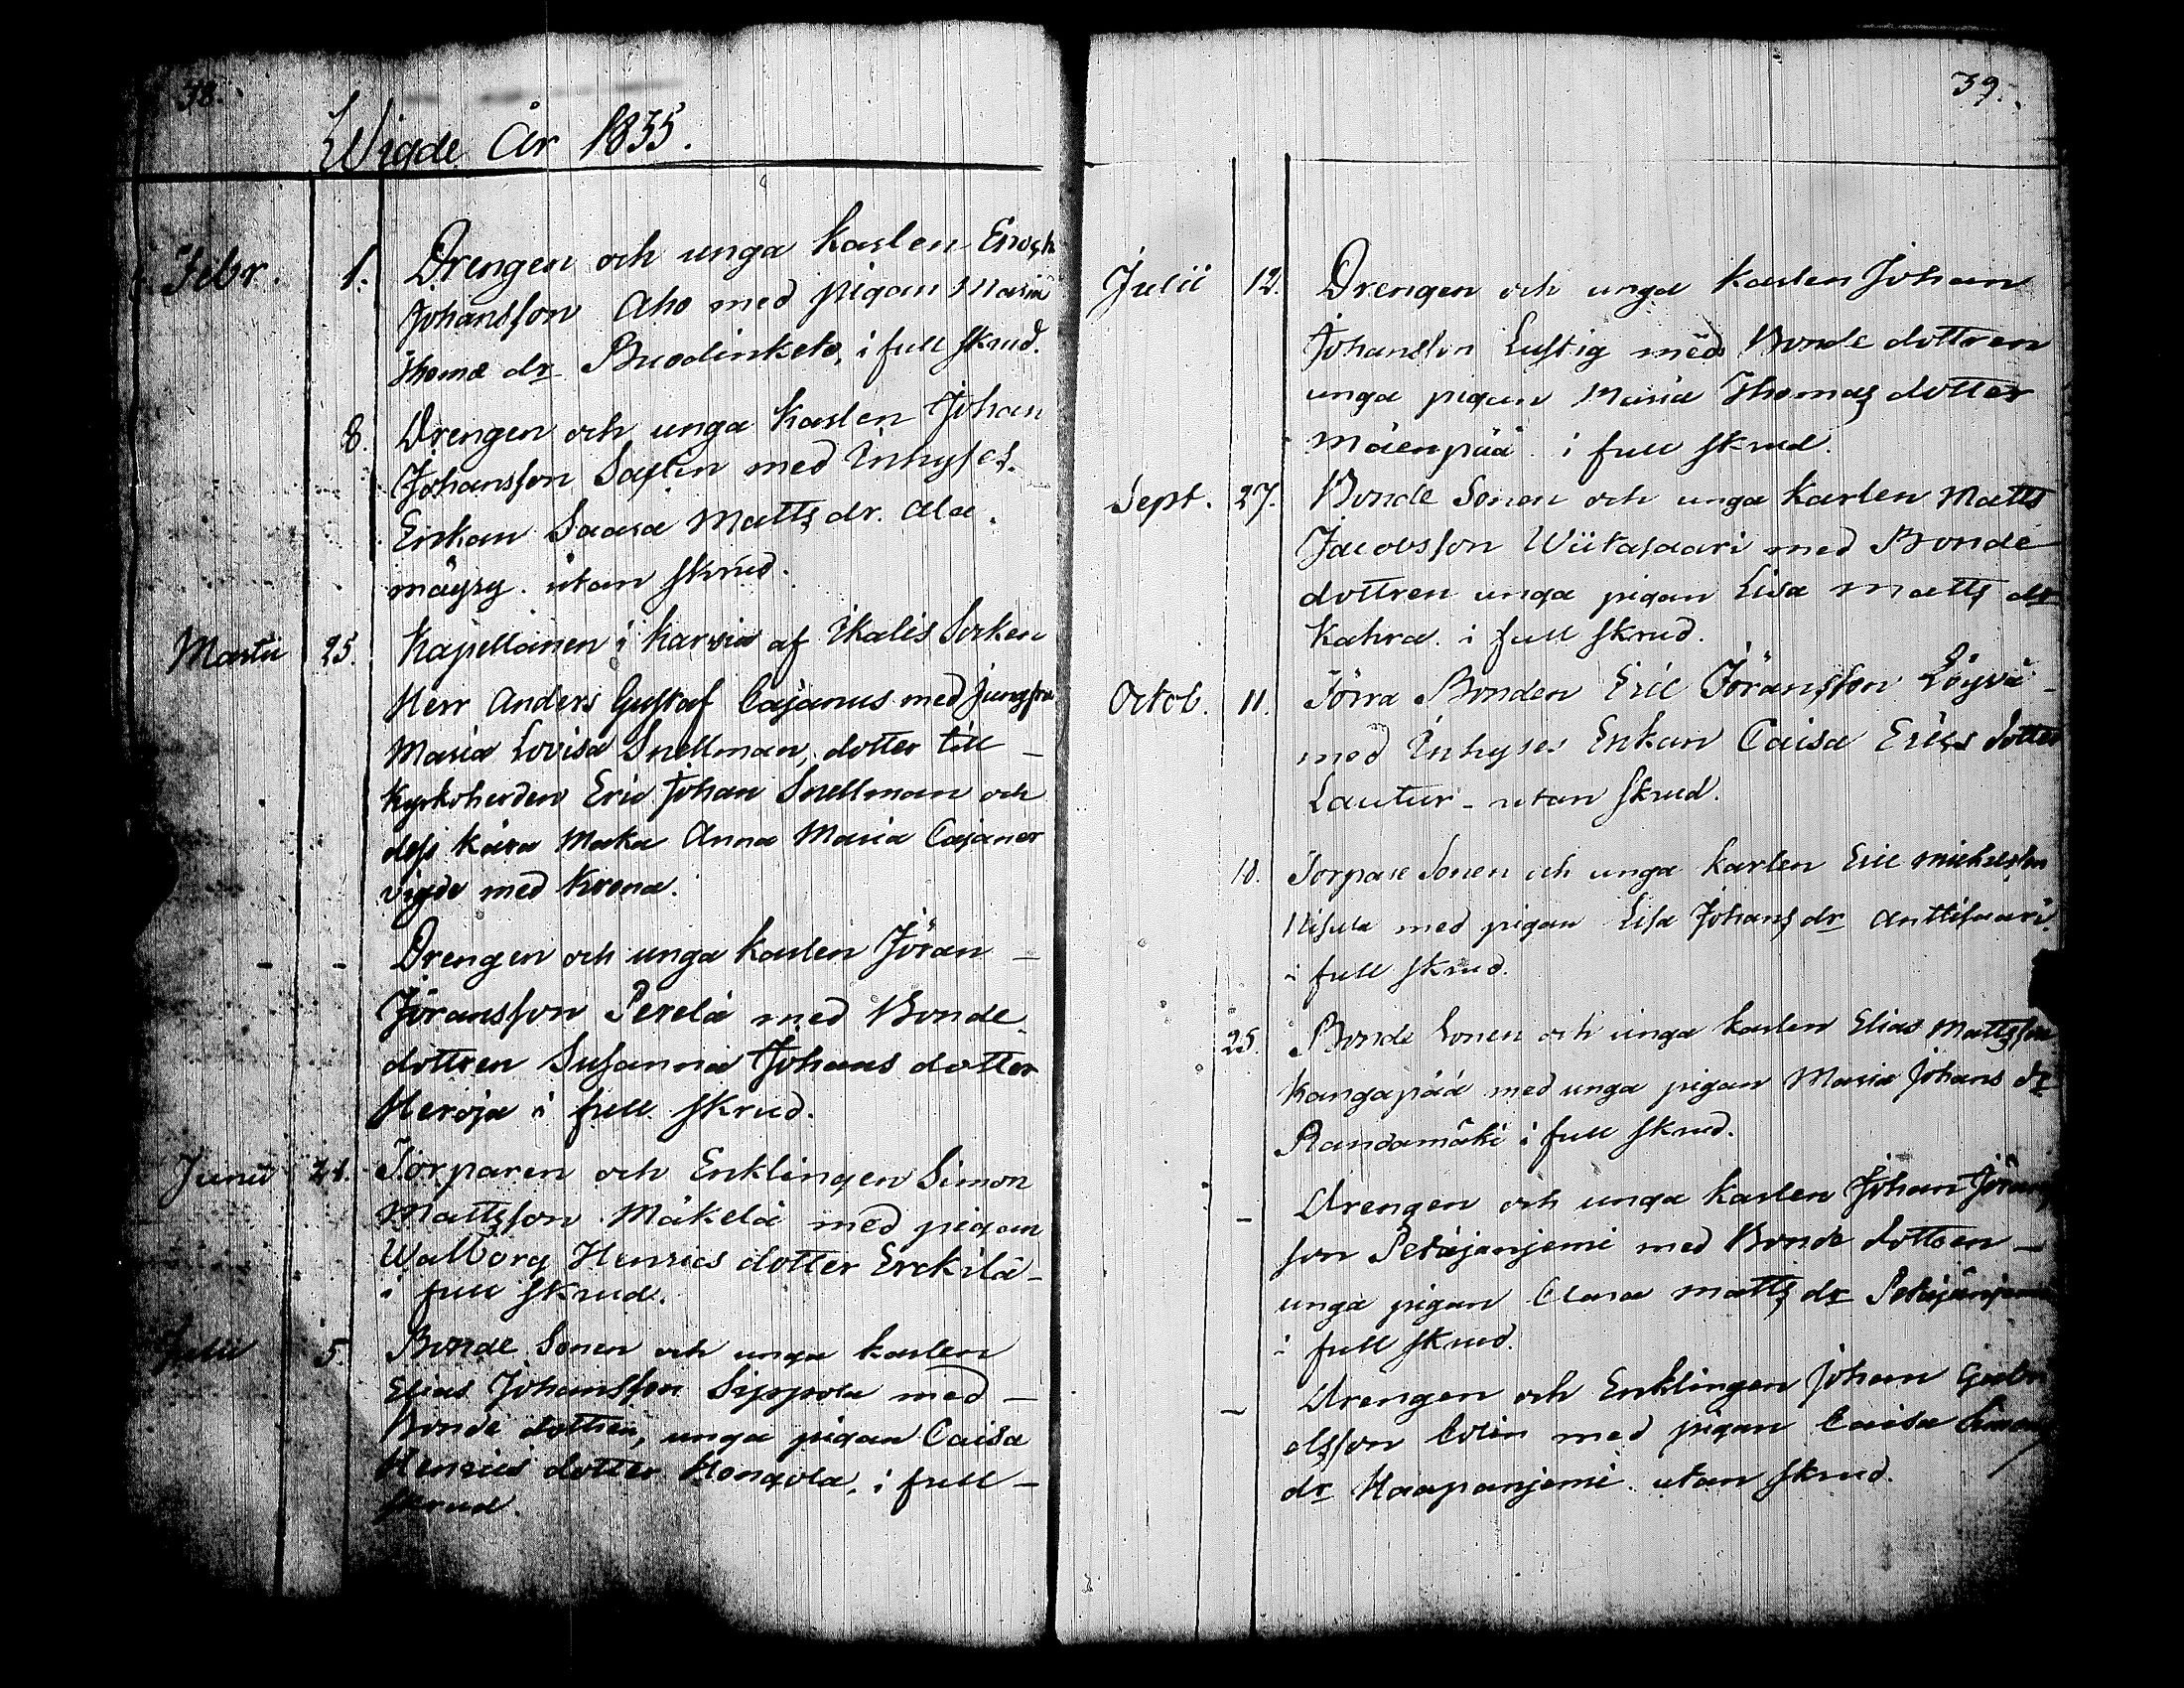 38.
Wigde År 1835.
Febr. 1. Drengen och unga Karlen Enoch
Johansson Aho med pigan Maria
Thomæ dr Buodinketo, i full skrud.
8. Drengen och unga Karlen Johan
Johansson Saxlin med Inhyses
Enkan Saara Matts dr. Ala
mäyry. utan skrud.
Martii 25. Kapellanen i Karvia af Ikalis Socken
Herr Anders Gustaf Cajanus med Jungfru
Maria Lovisa Snellman, dotter till
Kyrkoherden Eric Johan Snellman och
dess Kära Maka Anna Maria Cajaner
vigde med Krona.
- - Drengen och unga Karlen Jöran
Jöransson Perelä med Bonde
dottren Susanna Johans dotter
Heroja i full skrud.
Junii 21. Torparen och Enklingen Simon
Mattsson Mäkelä med pigan
Walborg Henrics dotter Erckilä
i full skrud.
Julii 5. Bonde Sonen och unga Karlen
Elias Johansson Sippola med
Bonde dottren, unga pigan Caisa
Henrics dotter Hongola, i full
skrud.
39.
Julii 12. Drengen och unga Karlen Johan
Johansson Lustig med Bonde dottren
unga pigan Maria Thomas dotter
Mäenpää. i full skrud.
Sept. 27. Bonde Sonen och unga Karlen Matts
Jacobsson Wiitasaari med Bonde
dottren unga pigan Lisa Matts dr
Kahra. i full skrud.
Octob. 11. Förra Bonden Eric Jöransson Löyvä
med Inhyses Enkan Caisa Erics dotter
Lautur - utan skrud.
18. Torpare Sonen och unga Karlen Eric Michelsson
med pigan Lisa Johans dr Anttisaari.
i full skrud.
25. Bonde Sonen och unga Karlen Elias Mattsson
Kangapää med unga pigan Maria Johans dr
Randamäki i full skrud.
- Drengen och unga Karlen Johan Jörans
son Petäjänjemi med Bonde dottren
unga pigan Clara Matts dr Petäjänjemi
i full skrud.
- Drengen och Enklingen Johan Gabri
elsson Colin med pigan Caisa Simons
dr Haapanjemi. utan skrud.